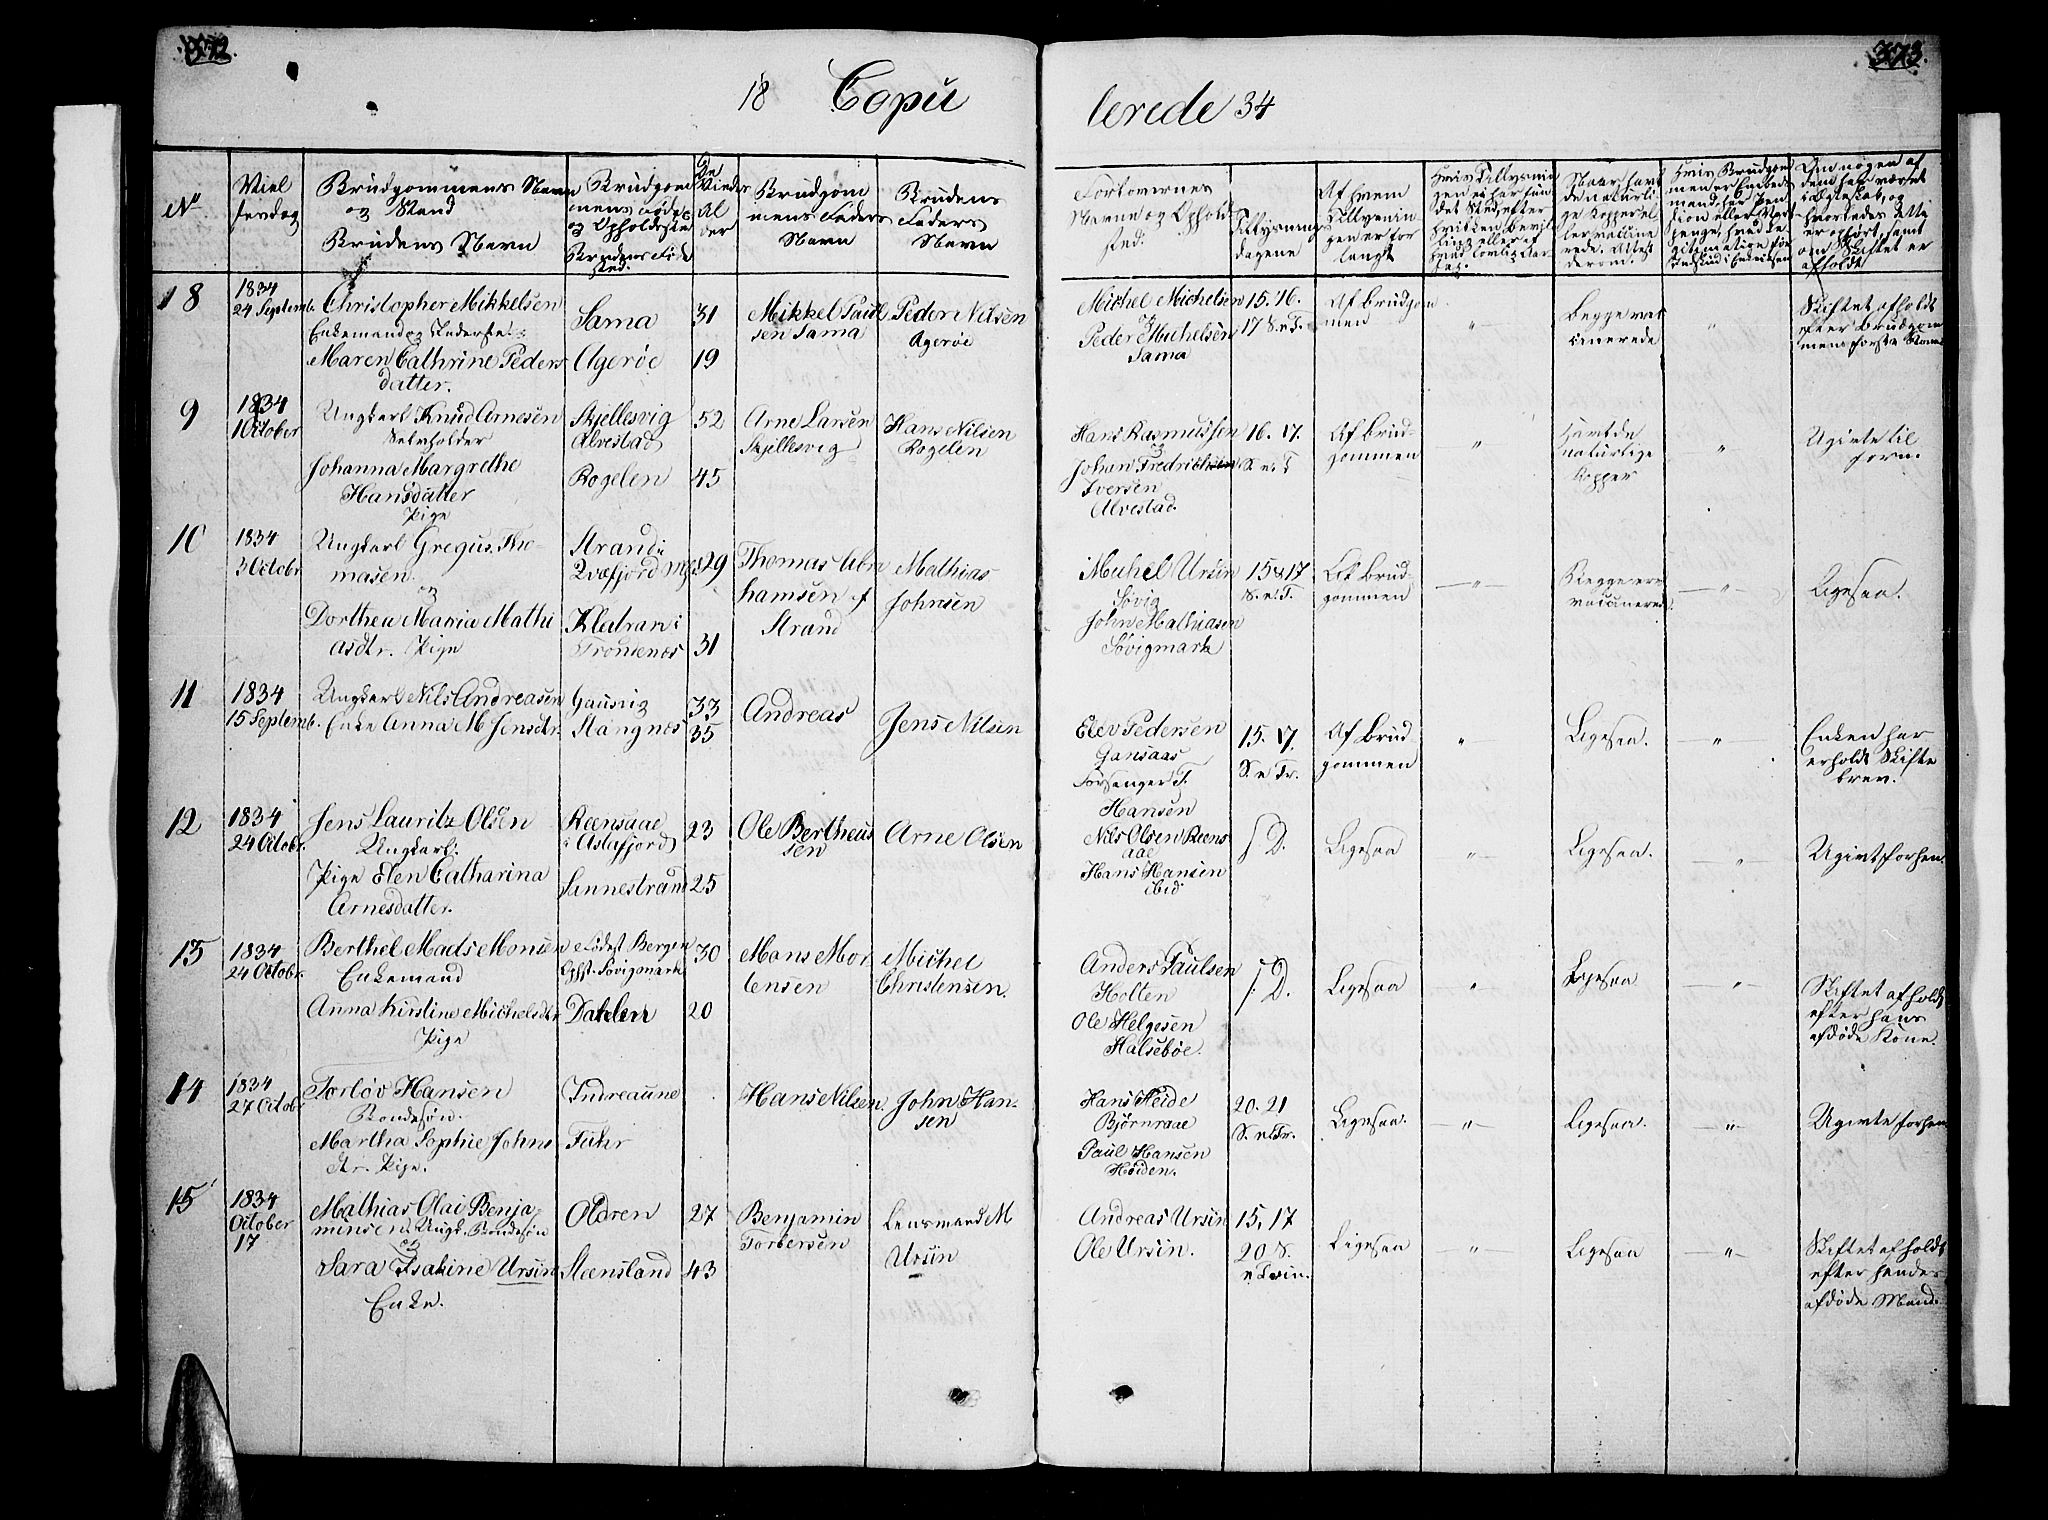 372.
373.
18 Copu
lerede 34
No
Viel
sesdag
Brudgommens Navn
og Stand
Brudens Navn
Brudgom
mens føde
og Opholdssted
Brudens Føde
sted.
De
Viedes
Al
der
Brudgom
mens Faders
Navn
Brudens
Faders
Navn
Forlovernes
Navne og Ophold
sted.
Tillysnings
dagene
Af hvem
Tillysnin
gen er for
langt
18
1834
24 Septemb.
Christopher Mikkelsen
Enkemand og Inderst
Maren Cathrine Peders
datter.
Sama
Agerøe
31
19
Mikkel Paul
sen Sama
Peder Nilsen
Agerøe
Michel Michelsen
og
Peder Michelsen
Sama
15. 16.
17 S. e. T.
Af Brudgom
men
"
Begge vac
cinerede
"
Skiftet afholdt
efter Brudgom
mens første Kone
9
1834
1 October
Ungkarl Knud Arnesen
Selvholder
Johanna Margrethe
Hansdatter
Pige
Skjellesvig
Alvestad
Rogelen
52
45
Arne Larsen
Skjellesvig
Hans Nilsen
Rogelen
Hans Rasmussen
og
Johan Fredrichsen
Iversen
Alvestad.
16. 17.
S. e. T
Af Brud-
gommen
"
Havt de
naturlige
Kopper
"
Ugivte til
forn.
10
1834
3 Octobr
Ungkarl Gregus Tho-
masen.
og
Dorthea Maria Mathi
asdtr. Pige
Strand i
Qvæfjord
Klatran i
Trondenes
29
31
Thomas Abra
hamsen
Strand
Mathias
Johnsen
Michel Ursin
Søvig
John Mathiasen
Søvigmark
15 & 17
S. e. T.
Af Brud-
gommen
"
Begge ere
vaccinerede.
"
Ligesaa.
11
1834
15 Septemb.
Ungkarl Nils Andreasen
Enke Anna M Jensdtr.
Gausvig
Stangnes
33
35
Andreas
Jens Nilsen
Elev Pedersen
Gansaas
Forsanger T.
Hansen
15. 17.
S. e Tr.
Af Brud
gommen
"
Ligesaa.
"
Enken har
erholdt Skifte
brev.
12
1834
24 Octobr.
Jens Lauritz Olsen
Ungkarl.
Pige Elen Catharina
Arnesdatter.
Reensaae
i Astafjord
Sannestrand
23
25
Ole Bertheus
sen
Arne Olsen
Nils Olsen Reens
aae
Hans Hansen
ibid
S. D.
Ligesaa
"
Ligesaa.
"
Ugivt forhen.
13
1834
24 Octobr.
Berthel Mads Monsen
Enkemand
Anna Kirstine Michelsdtr
Pige
Fødest. Bergen
Ophst. Søvigmark
Dahlen
30
20
Mons Mor
tensen
Michel
Christensen.
Anders Paulsen
Holten
Ole Helgesen
Halsebøe.
S. D.
Ligesaa
"
Ligesaa
"
Skiftet afholdt
efter hans
afdøde Kone.
14
1834
27 Octobr
Torløv Hansen
Bondesøn.
Martha Sophie Johns
dtr. Pige.
Indreaune
Fuhr
Hans Nilsen
John Han-
sen
Hans Heide
Bjørnraae
Paul Hansen
Høiden.
20. 21
S. e Tr.
Ligesaa.
"
Ligesaa.
"
Ugivte forhen
15
1834
October
17
Mathias Olai Benja
minsen Ungk. Bondesøn
og
Sara Isakine Ursin
Enke.
Oldren
Steensland
27
43
Benjamin
Torbersen
Lensmand M
Ursin
Andreas Ursin
Ole Ursin.
15, 17
20 S.
e Trin.
Ligesaa
"
Ligesaa
"
Skiftet afholdt
efter hendes
afdøde Mand.